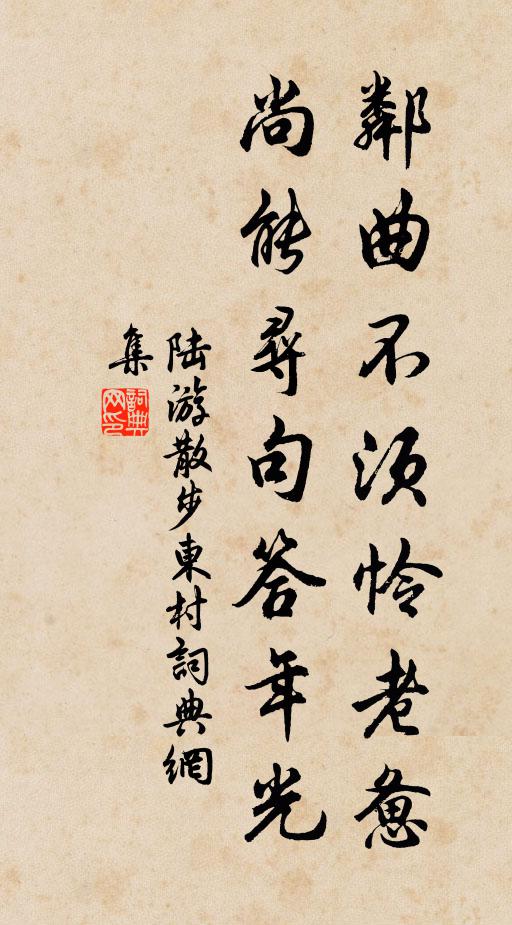 鄰曲不須怜老憊
尚能尋句答年光
陆游散步東村詞典網
集
詞典网印